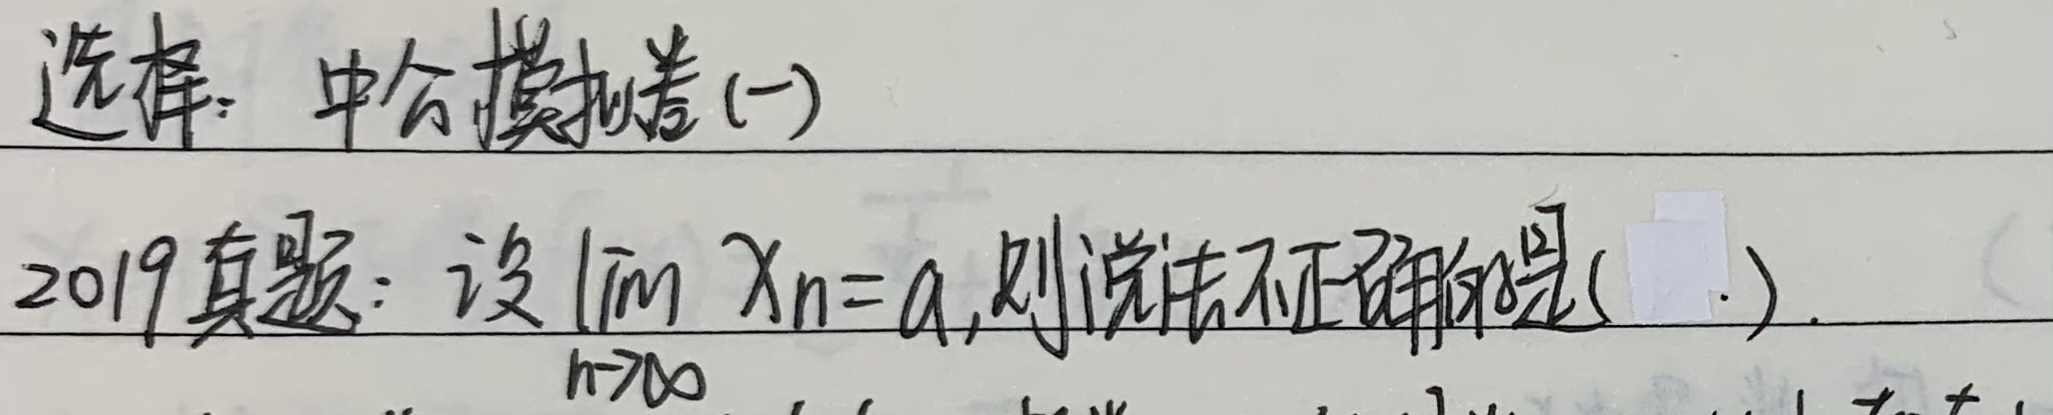 选择：中公模拟卷(一)
2019真题：设 lim xn=a,则说法不正确的是( ).
n→∞